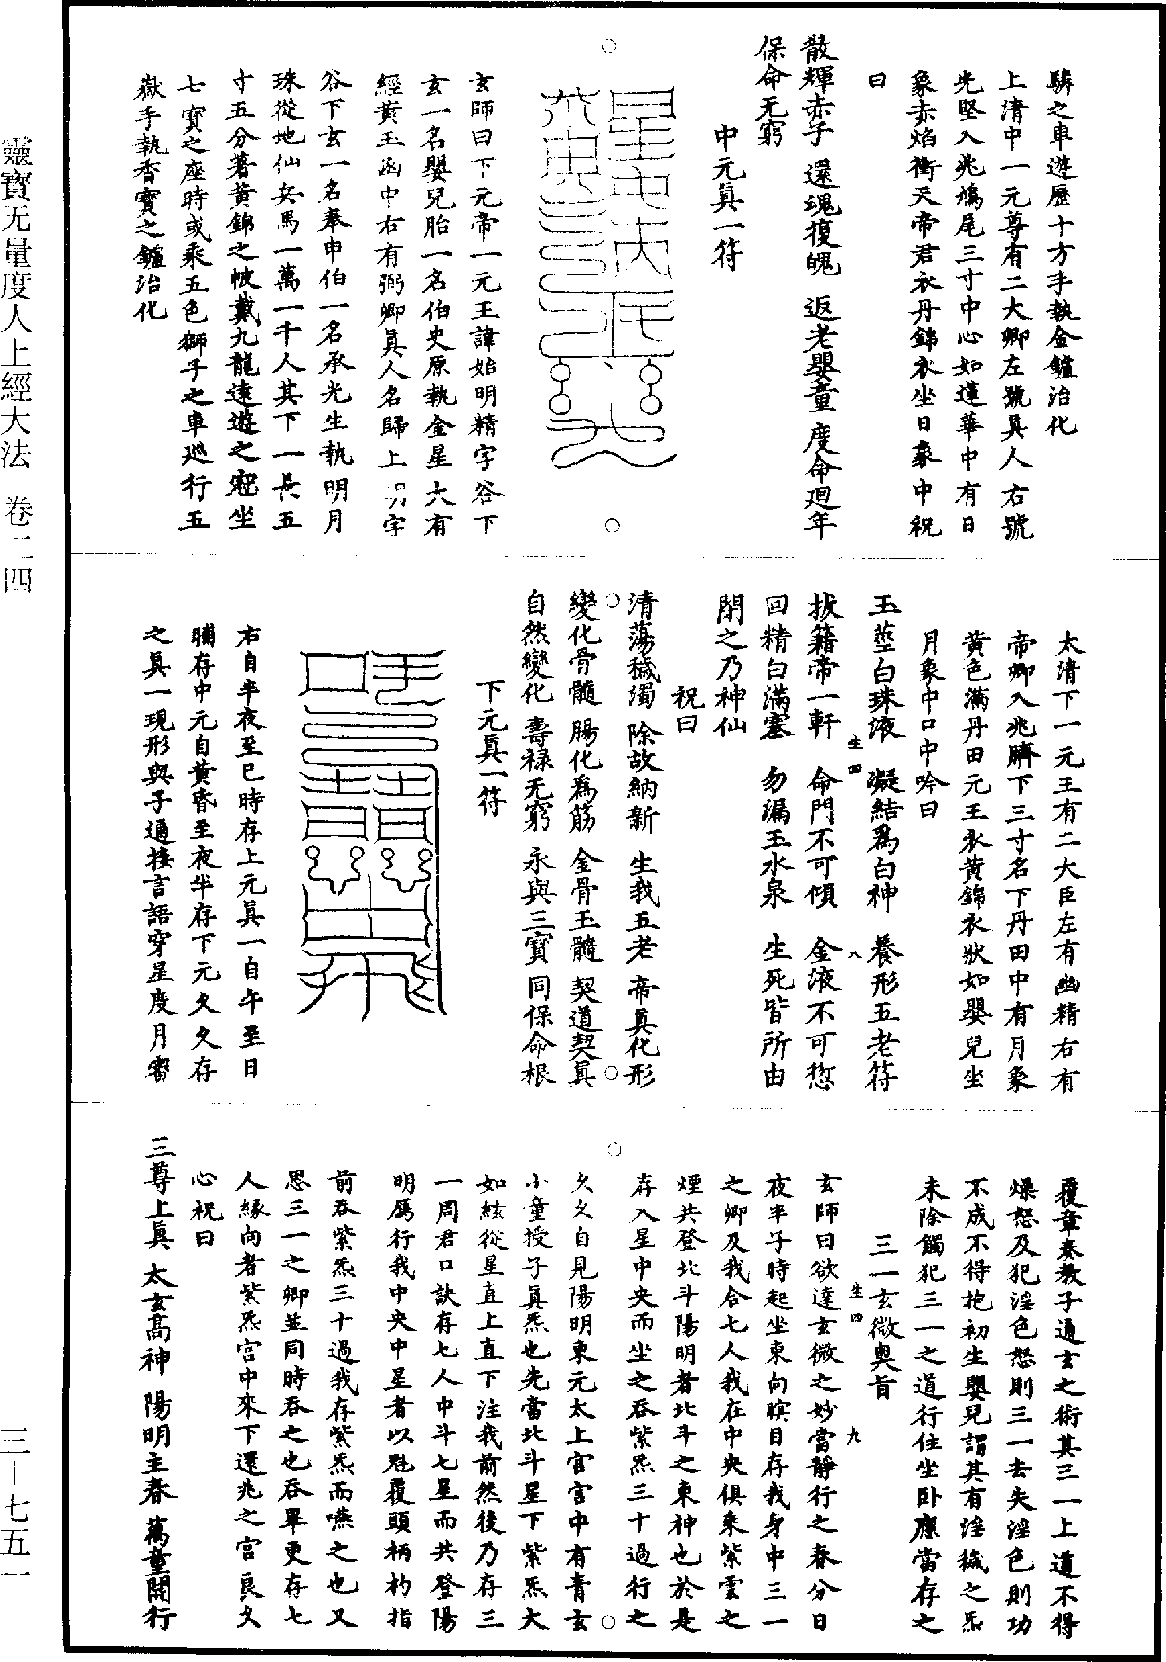 驎之車遊歷十方手執金鑪治化
上清中一元尊有二大卿左號真人右號
光堅入兆鳩尾三寸中心如蓮華中有日
象赤焰衝天帝君衣丹錦衣坐日象中祝
曰
散輝赤子 還魂復魄 返老嬰童 度命迴年
保命无窮
中元真一符
玄師曰下元帝一元王諱始明精字谷下
玄一名嬰兒胎一名伯史原執金星六有
經黃玉函中右有弼卿真人名歸上明字
谷下玄一名奉申伯一名承光生執明月
珠從地仙兵馬一萬一千人其下一長五
寸五分著黃錦之帔戴九龍遠遊之冠坐
七寶之座時或乘五色獅子之車巡行五
嶽手執香寶之鑪治化
太清下一元王有二大臣左有幽精右有
帝卿入兆臍下三寸名下丹田中有月象
黃色滿丹田元王衣黃錦衣狀如嬰兒坐
月象中口中吟曰
玉莖白珠液 凝結為白神 養形五老符
拔籍帝一軒 命門不可傾 金液不可愆
生四 八
回精白滿塞 勿漏玉水泉 生死皆所由
閉之乃神仙
祝曰
清蕩穢濁 除故納新 生我五老 帝真化形
變化骨髓 腸化為筋 金骨玉髓 契道契真
自然變化 壽祿无窮 永與三寶 同保命根
下元真一符
右自半夜至巳時存上元真一自午至日
晡存中元自黃昏至夜半存下元久久存
之真一現形與子通接言語穿星度月審
覆章奏教子通玄之術其三一上道不得
燥怒及犯淫色怒則三一去失淫色則功
不成不得抱初生嬰兒謂其有淫穢之炁
未除觸犯三一之道行住坐臥凜當存之
三一玄微奧旨
生四 九
玄師曰欲達玄微之妙當靜行之春分日
夜半子時起坐東向瞑目存我身中三一
之卿及我合七人我在中央俱乘紫雲之
煙共登北斗陽明者北斗之東神也於是
存入星中央而坐之吞紫炁三十過行之
久久自見陽明東元太上宮宮中有青玄
小童授子真炁也先當北斗星下紫炁大
如絃從星直上直下注我前然後乃存三
一周君口訣存七人中斗七星而共登陽
明屬行我中央中星者以魁覆頭柄杓指
前吞紫炁三十過我存紫炁而嚥之也又
思三一之卿並同時吞之也吞畢更存七
人緣向者紫炁宮中來下還兆之宮良久
心祝曰
三尊上真 太玄高神 陽明主春 萬童開行
靈寶无量度人上經大法 卷二四
三—七五一